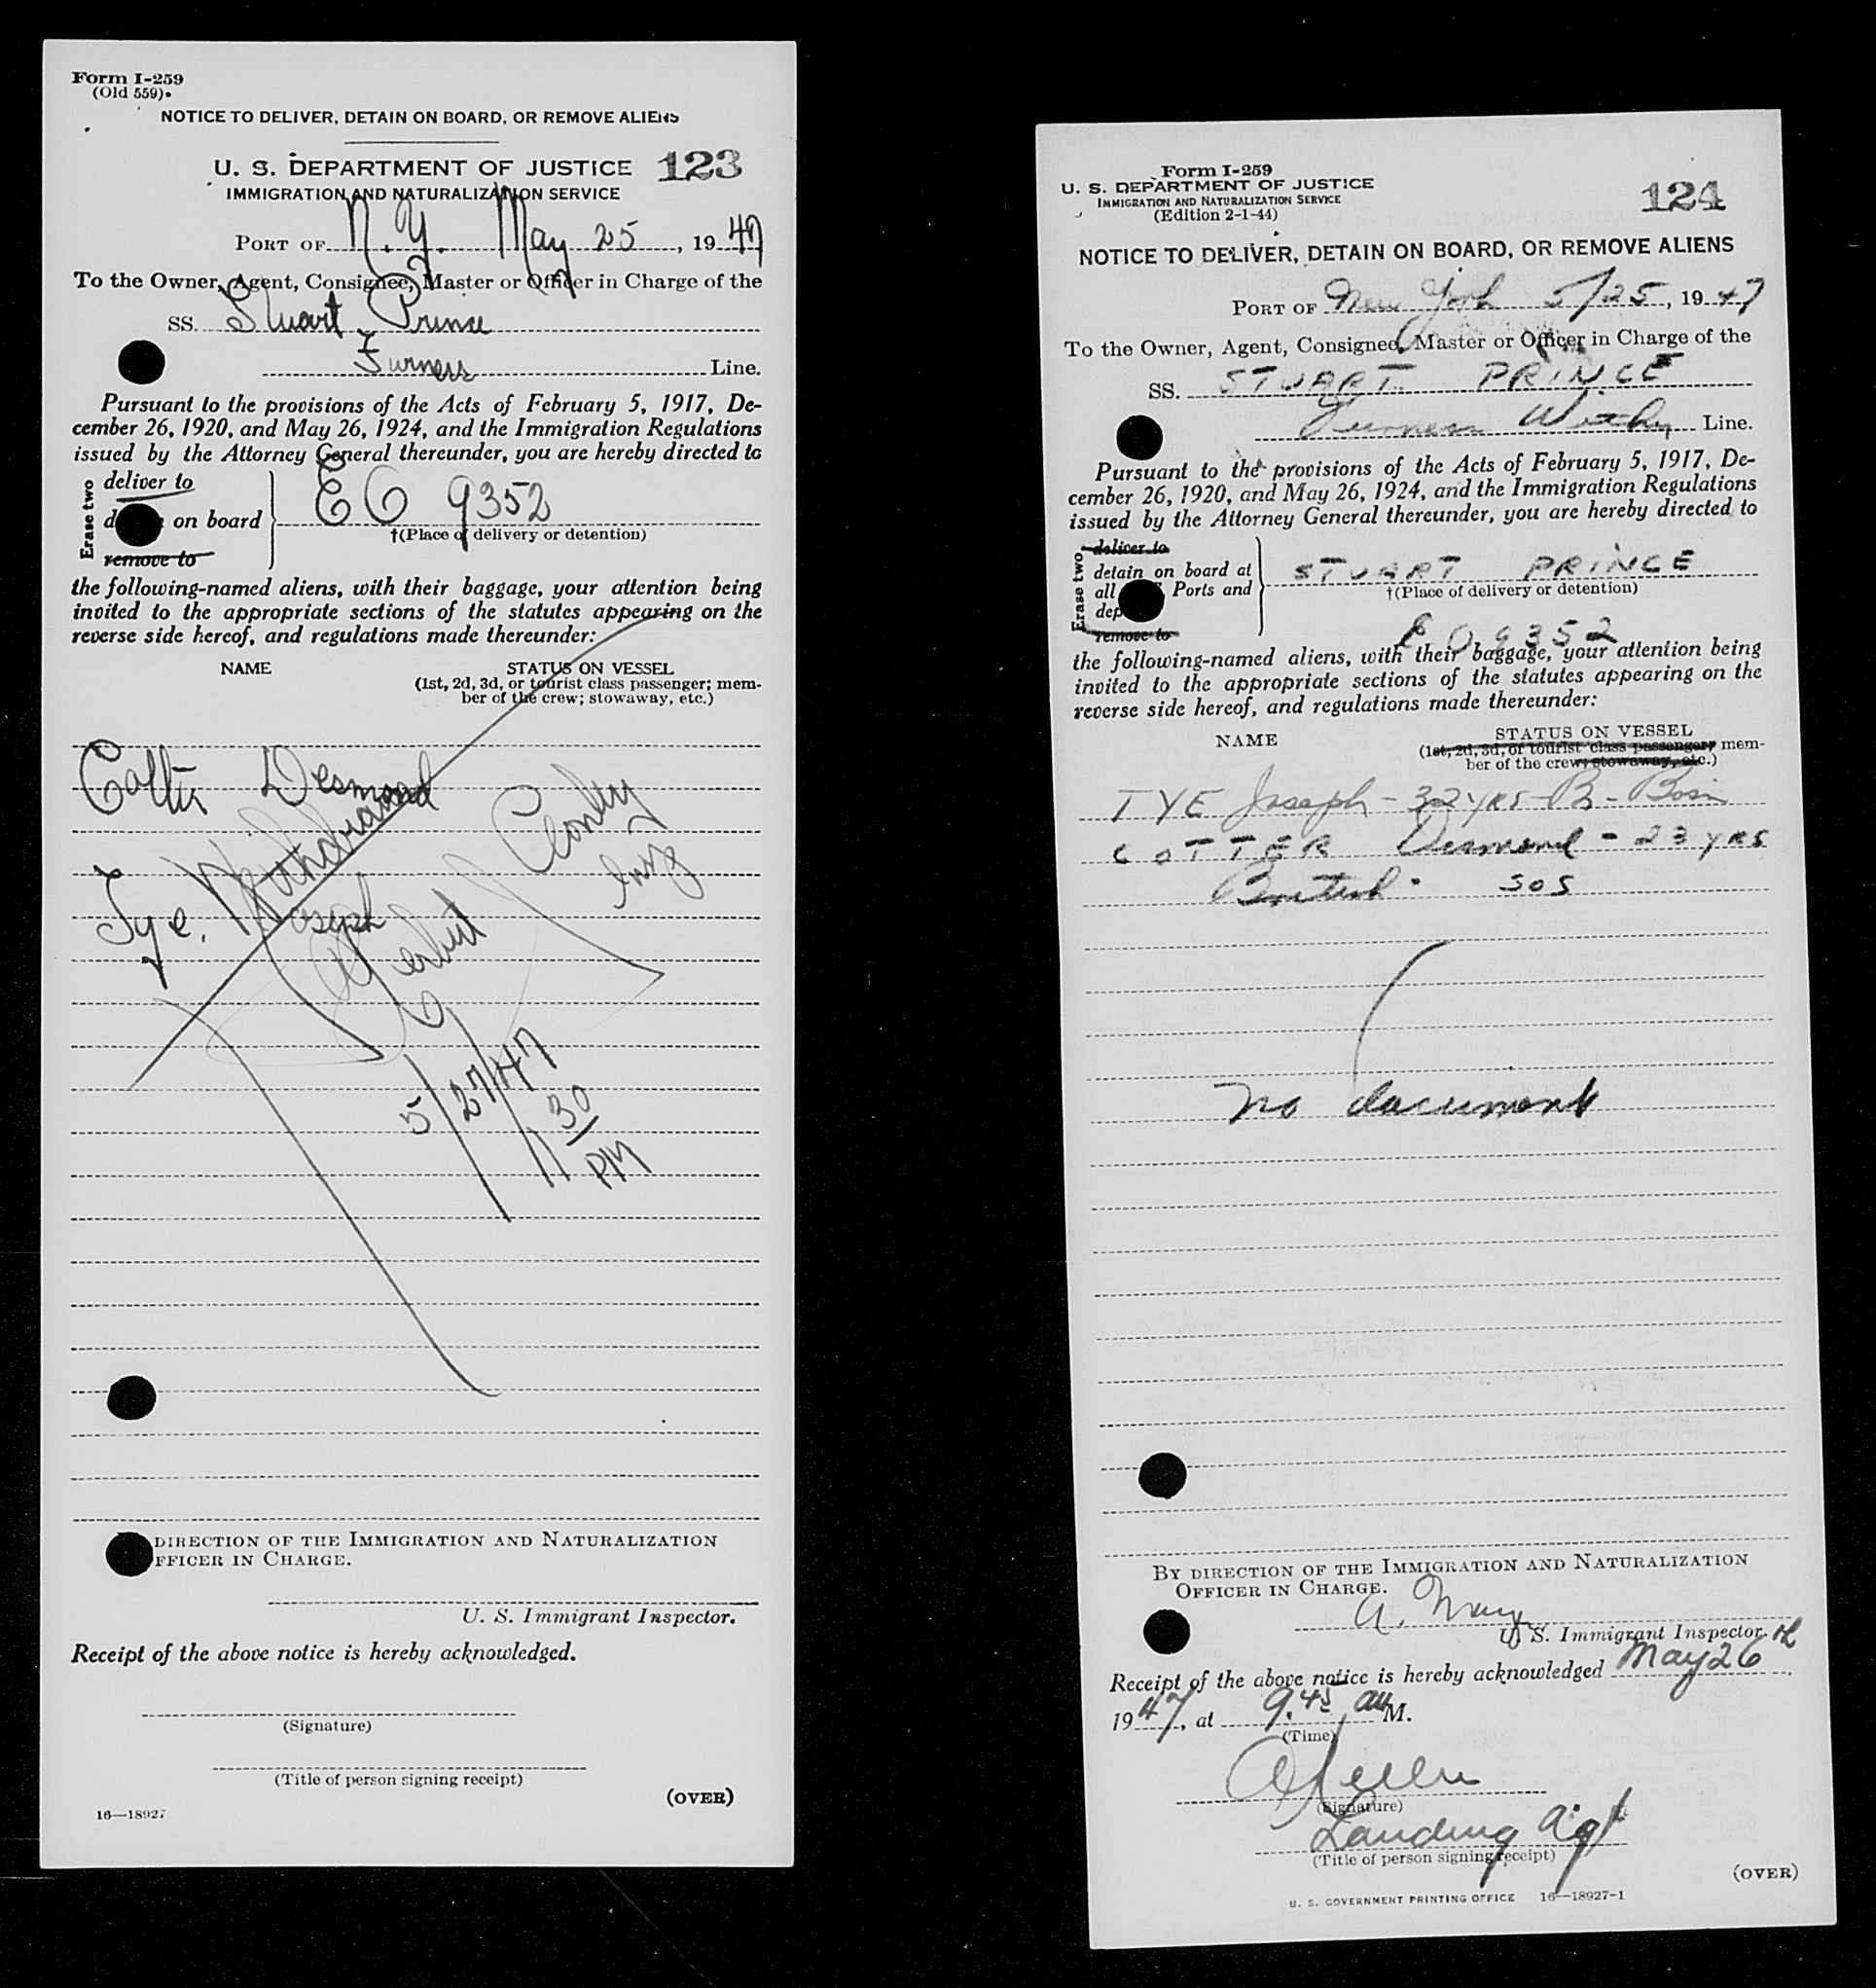 Form I-259
(Old 559)
NOTICE TO DELIVER, DETAIN ON BOARD, OR REMOVE ALIENS
U. S. DEPARTMENT OF JUSTICE 123
IMMIGRATION AND NATURALIZATION SERVICE
PORT OF N.Y. May 25, 1947
To the Owner, Agent, Consignee, Master or Officer in Charge of the
SS. Stuart Prince
Furness Line.
Pursuant to the provisions of the Acts of February 5, 1917, De-
cember 26, 1920, and May 26, 1924, and the Immigration Regulations
issued by the Attorney General thereunder, you are hereby directed to
Erase two
deliver to
on board
remove to
EO 9352
†(Place of delivery or detention)
the following-named aliens, with their baggage, your attention being
invited to the appropriate sections of the statutes appearing on the
reverse side hereof, and regulations made thereunder:
NAME STATUS ON VESSEL
(1st, 2d, 3d, or tourist class passenger; mem-
ber of the crew; stowaway, etc.)
Cotter Desmond
Tye, Joseph
Withdrawn
5/27/47
11 30
PM
DIRECTION OF THE IMMIGRATION AND NATURALIZATION
FFICER IN CHARGE.
U. S. Immigrant Inspector.
Receipt of the above notice is hereby acknowledged.
(Signature)
(Title of person signing receipt)
(OVER)
16—18927
Form I-259
U. S. DEPARTMENT OF JUSTICE
IMMIGRATION AND NATURALIZATION SERVICE
(Edition 2-1-44)
124
NOTICE TO DELIVER, DETAIN ON BOARD, OR REMOVE ALIENS
PORT OF New York 5/25, 1947
To the Owner, Agent, Consignee, Master or Officer in Charge of the
SS. STUART PRINCE
Furness Withy Line.
Pursuant to the provisions of the Acts of February 5, 1917, De-
cember 26, 1920, and May 26, 1924, and the Immigration Regulations
issued by the Attorney General thereunder, you are hereby directed to
Erase two
deliver to
detain on board at
all Ports and
dep
remove to
STUART PRINCE
†(Place of delivery or detention)
EO 9352
the following-named aliens, with their baggage, your attention being
invited to the appropriate sections of the statutes appearing on the
reverse side hereof, and regulations made thereunder:
NAME STATUS ON VESSEL
(1st, 2d, 3d, or tourist class passenger; mem-
ber of the crew; stowaway, etc.)
TYE Joseph - 32 yrs - B - Bosn
COTTER Desmond - 23 yrs
British SOS
no documents
BY DIRECTION OF THE IMMIGRATION AND NATURALIZATION
OFFICER IN CHARGE.
U. S. Immigrant Inspector.
Receipt of the above notice is hereby acknowledged May 26th
1947, at 9.45 am M.
(Time)
(Signature)
Landing Agt
(Title of person signing receipt)
(OVER)
U. S. GOVERNMENT PRINTING OFFICE 16—18927-1